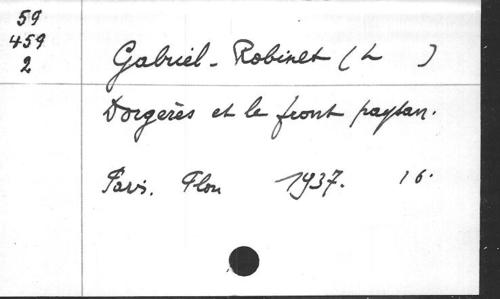 59
459
2
Gabriel-Robinet (L )
Dorgères et le front paysan.
Paris. Plon 1937. 16.